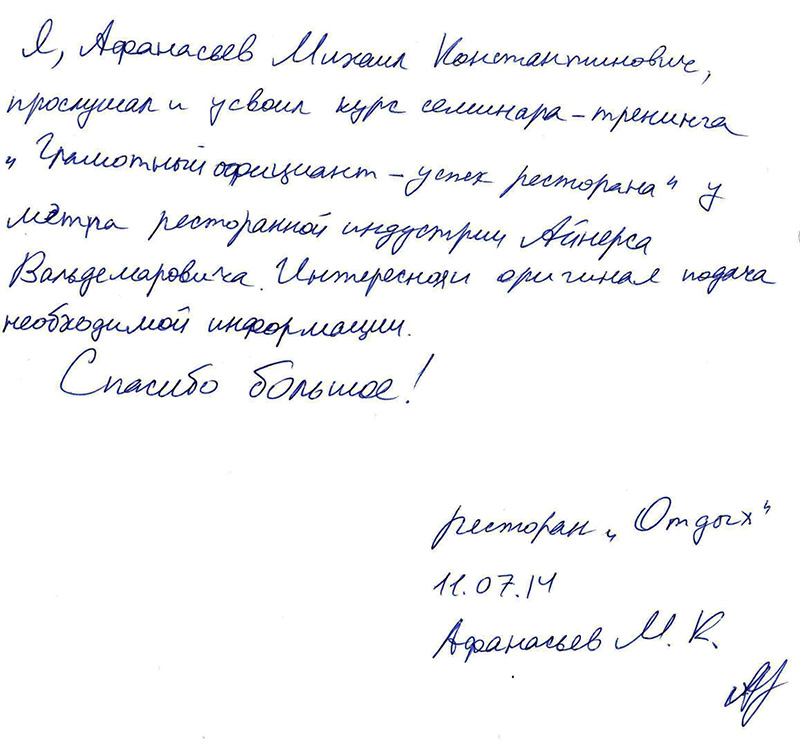 Я, Афанасьев Михаил Константинович,
прослушал и усвоил курс семинара-тренинга
„Грамотный официант - успех ресторана" у
мэтра ресторанной индустрии Айнерса
Вальдемаровича. Интересная и оригинал подача
необходимой информации.
Спасибо большое!
ресторан „Отдых"
11.07.14
Афанасьев М. К.